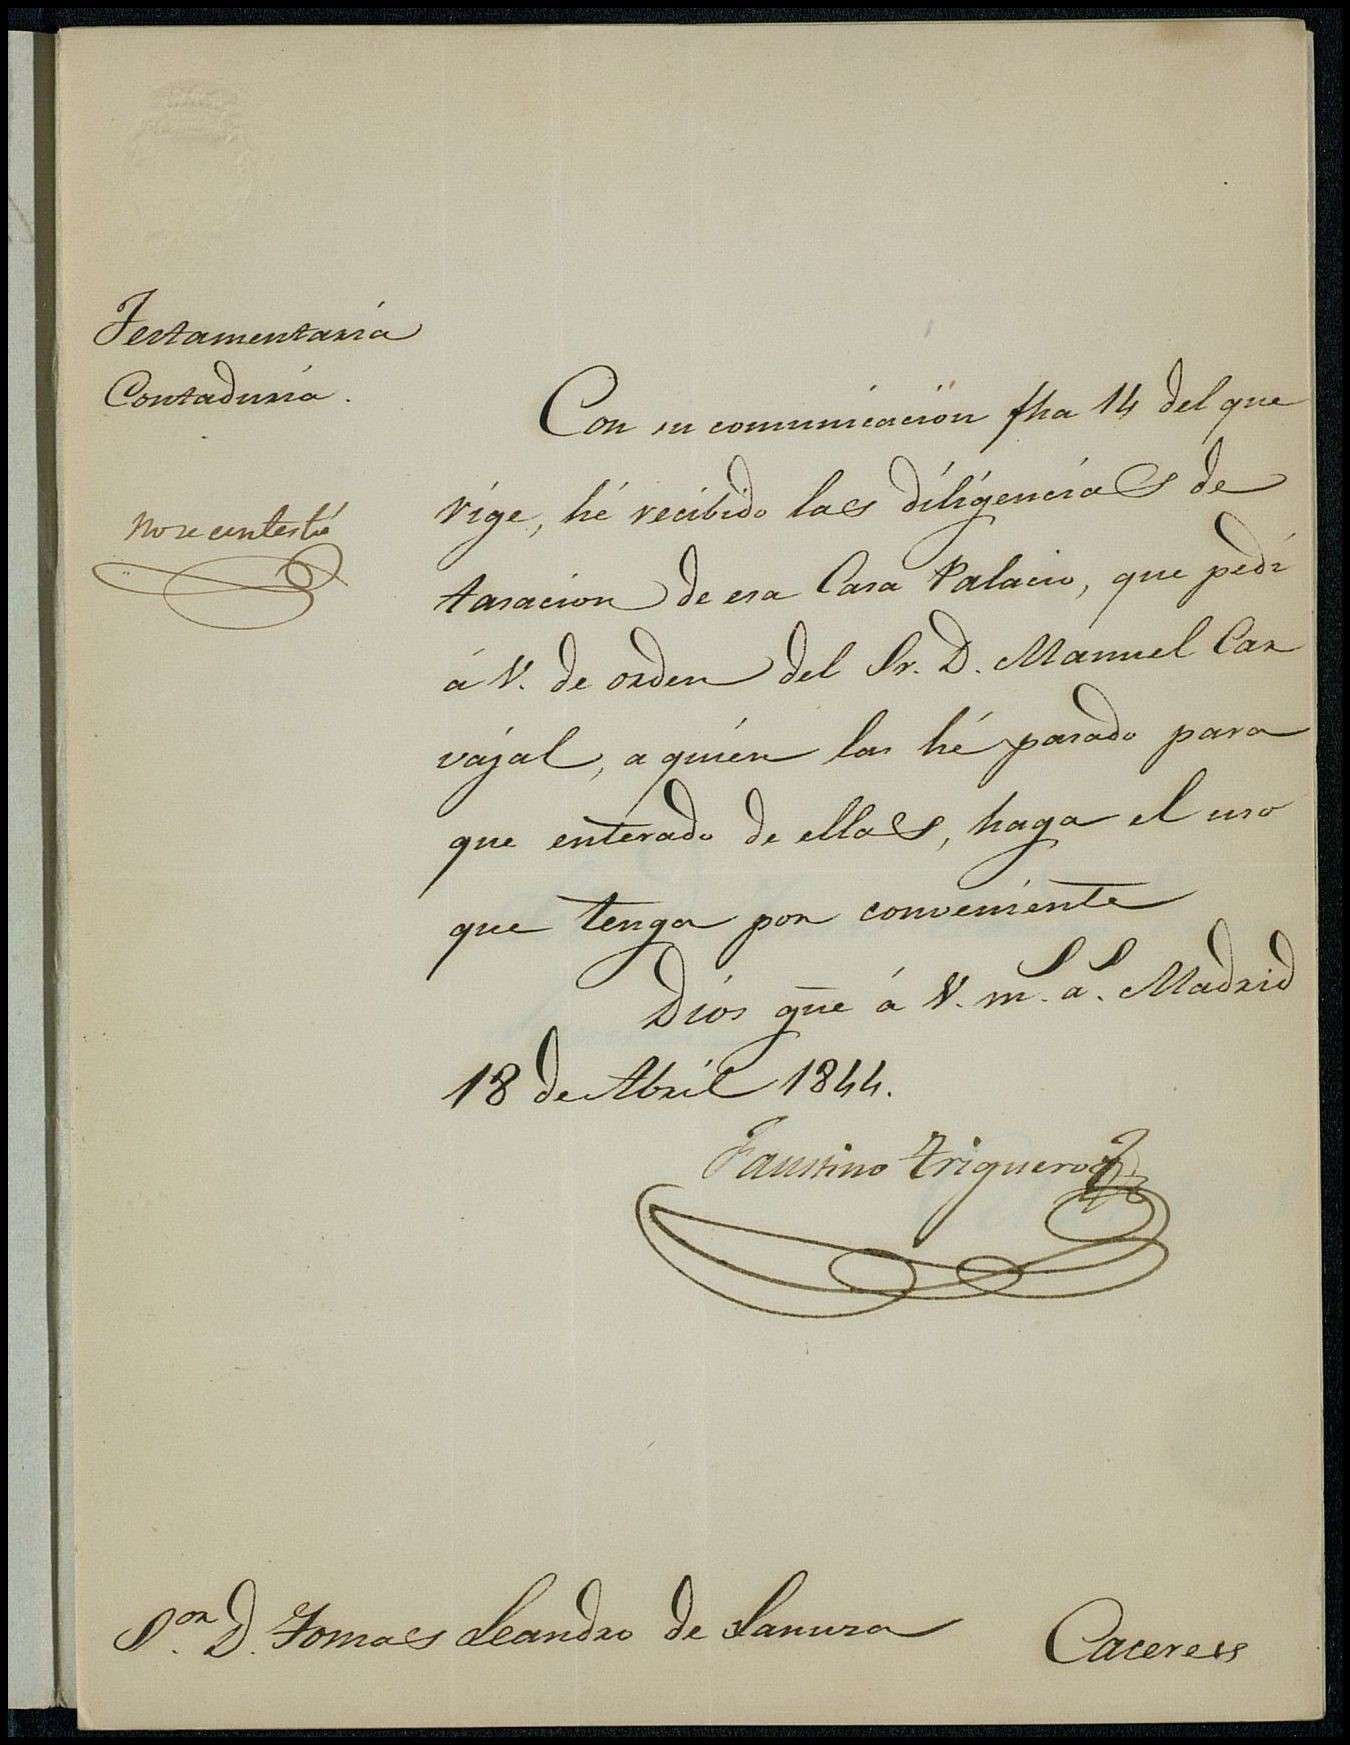 Testamentaria
Contaduria.
no se contestó
Con su comunicación fha 14 del que
rige, hé recibido las diligencias de
tasacion de esa Casa Palacio, que pedi
á V. de orden del Sr. D. Manuel Car
vajal, a quien las hé pasado para
que enterado de ellas, haga el uso
que tenga por conveniente
Dios gue á V. ms. as. Madrid
18 de Abril 1844.
Faustino Trigueros
Sor. D. Tomas Leandro de
Caceres